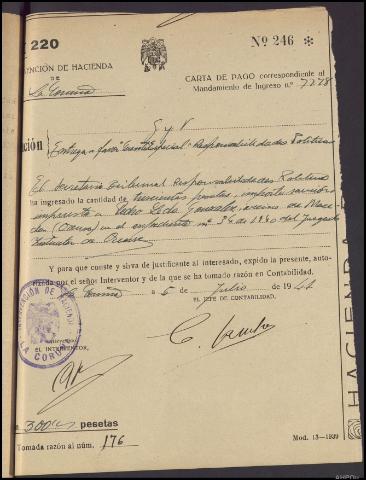 220
Nº 246 *
VENCIÓN DE HACIENDA
DE
La Coruña
CARTA DE PAGO correspondiente al
Mandamiento de Ingreso n.º 7278
Entrega a favor Cuenta Especial "Responsabilidades Políticas
El Secretario Tribunal Responsabilidades Políticas
ha ingresado la cantidad de trescientas pesetas, importe sanción
impuesta a Ledo Gonzalez, vecino de
(Orense) en el expediente nº 36 de 1940 del Juzgado
Instructor de Orense
Y para que conste y sirva de justificante al interesado, expido la presente, auto-
rizada por el señor Interventor y de la que se ha tomado razón en Contabilidad.
La Coruña a 5 de Julio de 1941
EL JEFE DE CONTABILIDAD,
INTERVENCIÓN DE HACIENDA
LA CORUÑA
EL INTERVENTOR,
300 pesetas
Tomada razón al núm. 176
Mod. 13-1939
HACIENDA